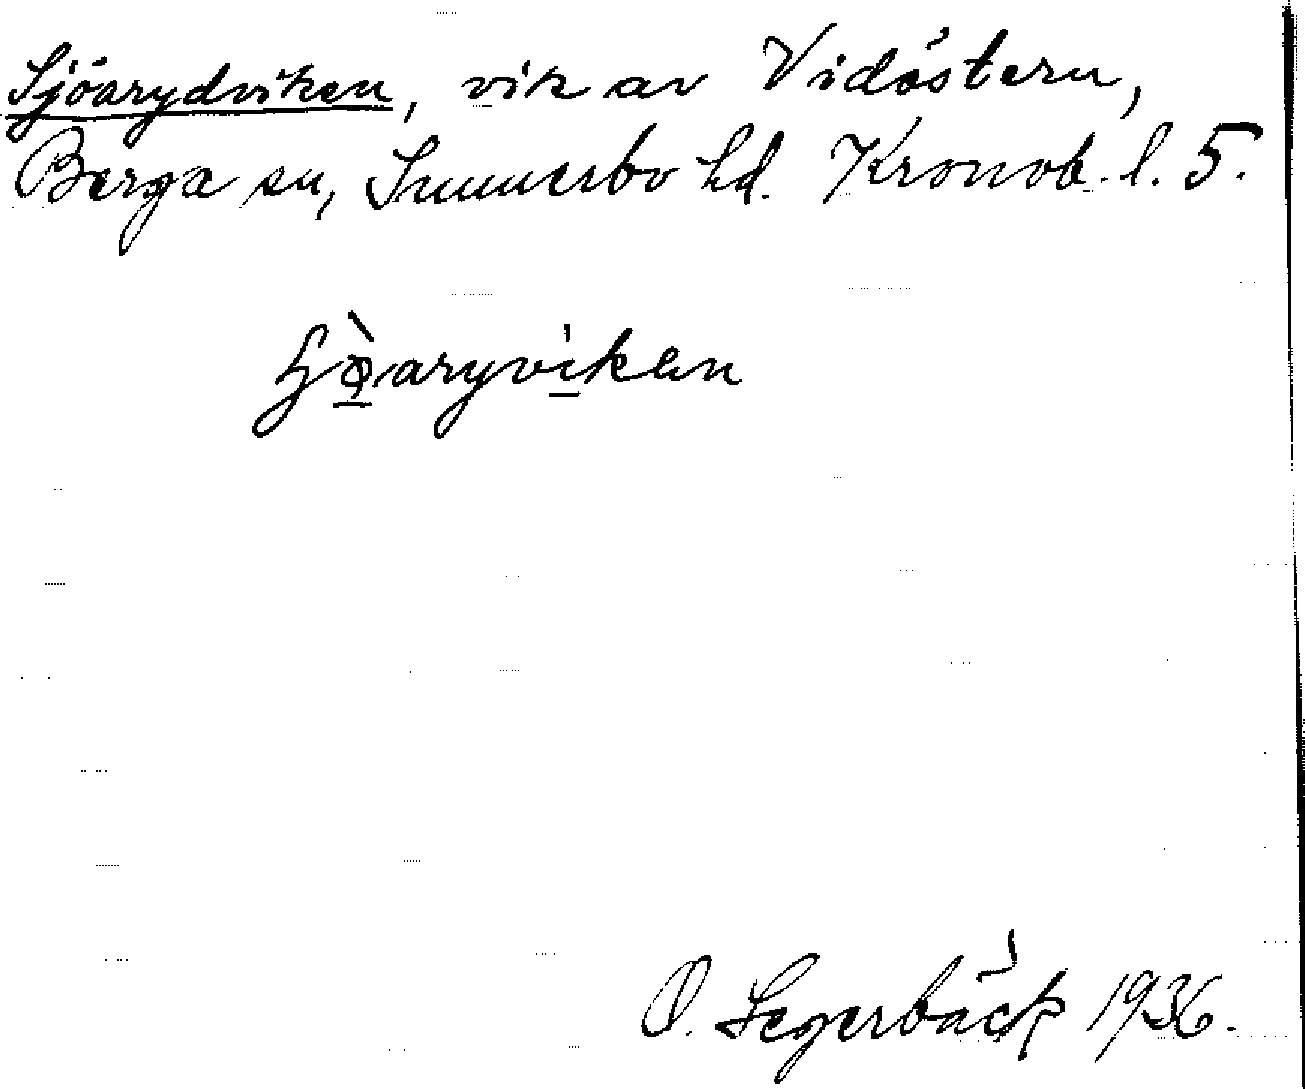 Sjöarydviken, vik av Vidöstern,
Berga sn, Sunnerbo hd. Kronob. l. 5.
O. Segerbäck 1936.